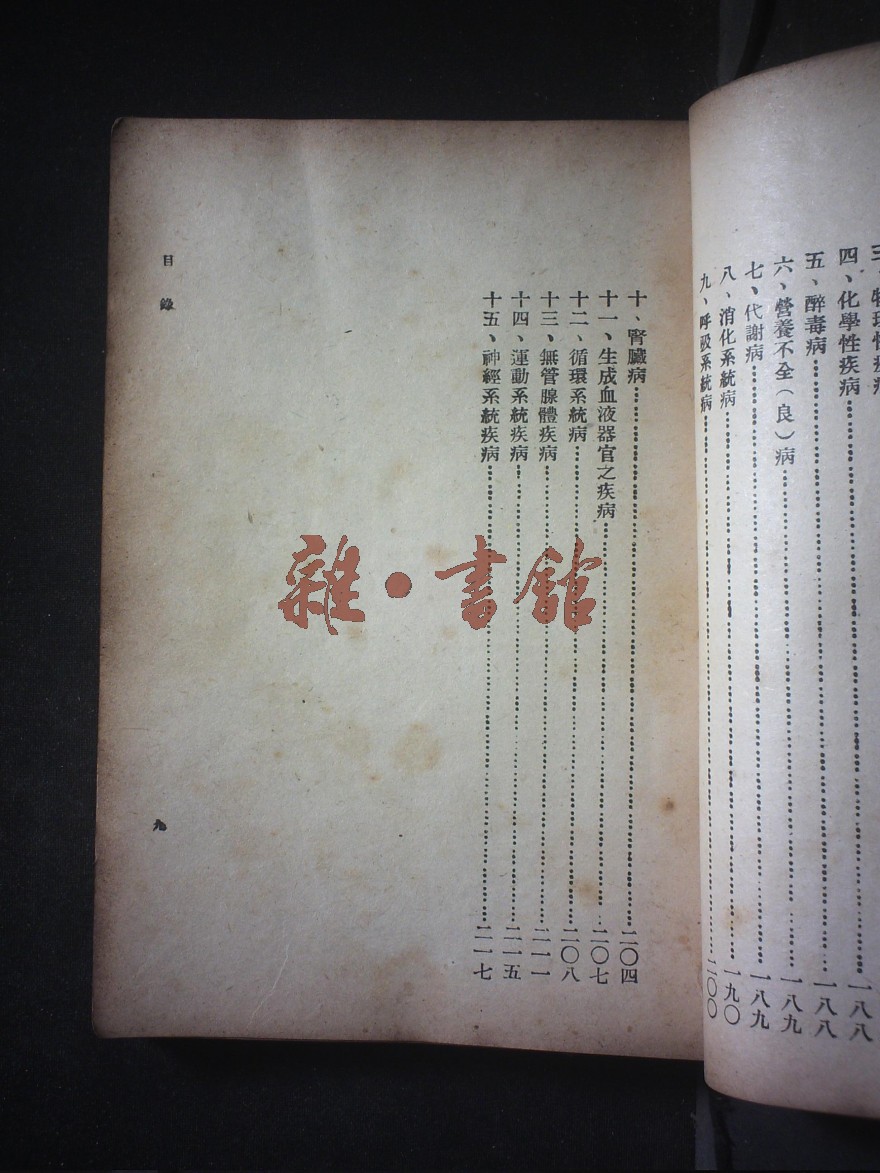 四、化學性疾病……一八八
五、醉毒病……一八八
六、營養不全(良)病……一八九
七、代謝病……一八九
八、消化系統病……一九〇
九、呼吸系統病……二〇〇
十、腎臟病……二〇四
十一、生成血液器官之疾病……二〇七
十二、循環系統病……二〇八
十三、無管腺體疾病……二一一
十四、運動系統疾病……二一五
十五、神經系統疾病……二一七
目錄
九
雜·書館